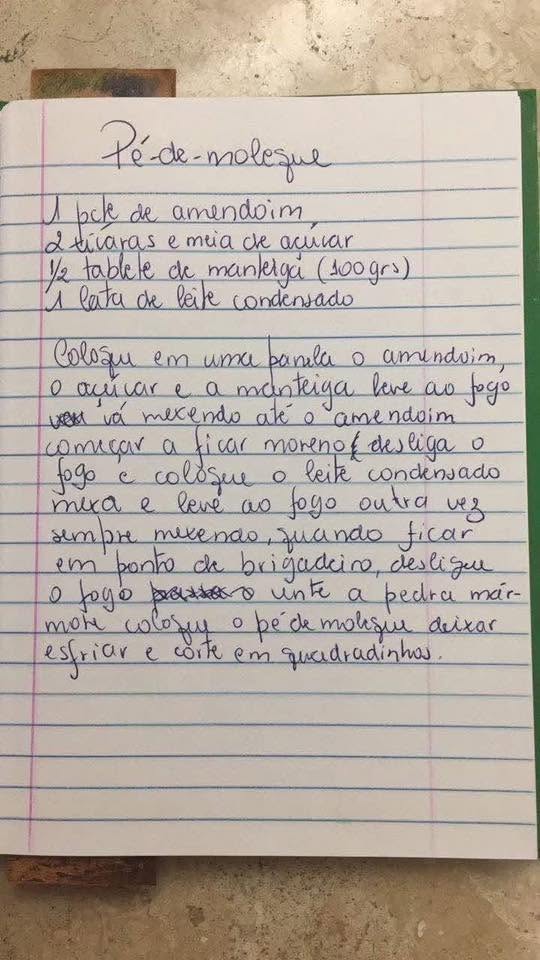 Pé-de-moleque
1 pcte de amendoim
2 xícaras e meia de açúcar
1/2 tablete de manteiga (100grs)
1 lata de leite condensado
Coloqu em uma panela o amendoim,
o açúcar e a manteiga leve ao fogo
vá mexendo até o amendoim
começar a ficar moreno desliga o
fogo e coloque o leite condensado
mexa e leve ao fogo outra vez
sempre mexendo, quando ficar
em ponto de brigadeiro, desligue
o fogo unte a pedra már-
more coloque o pé de moleque deixar
esfriar e corte em quadradinhos.